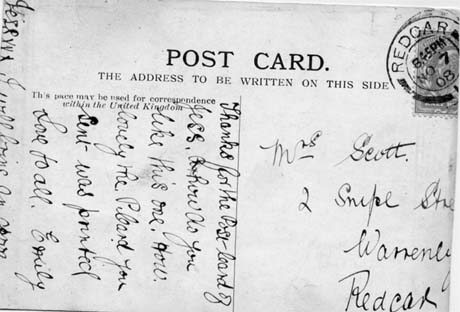 POST CARD.
THE ADDRESS TO BE WRITTEN ON THIS SIDE
This space may be used for correspondence
within the United Kingdom
REDCAR
8.45 PM
NO 7
08
Mrs Scott.
2 Snipe Stre
Warrenby
Redcar
Thanks for the Post-card of
Jess. How do you
like this one. How
lovely the P.Card you
sent was printed
Love to all. Emily
I will